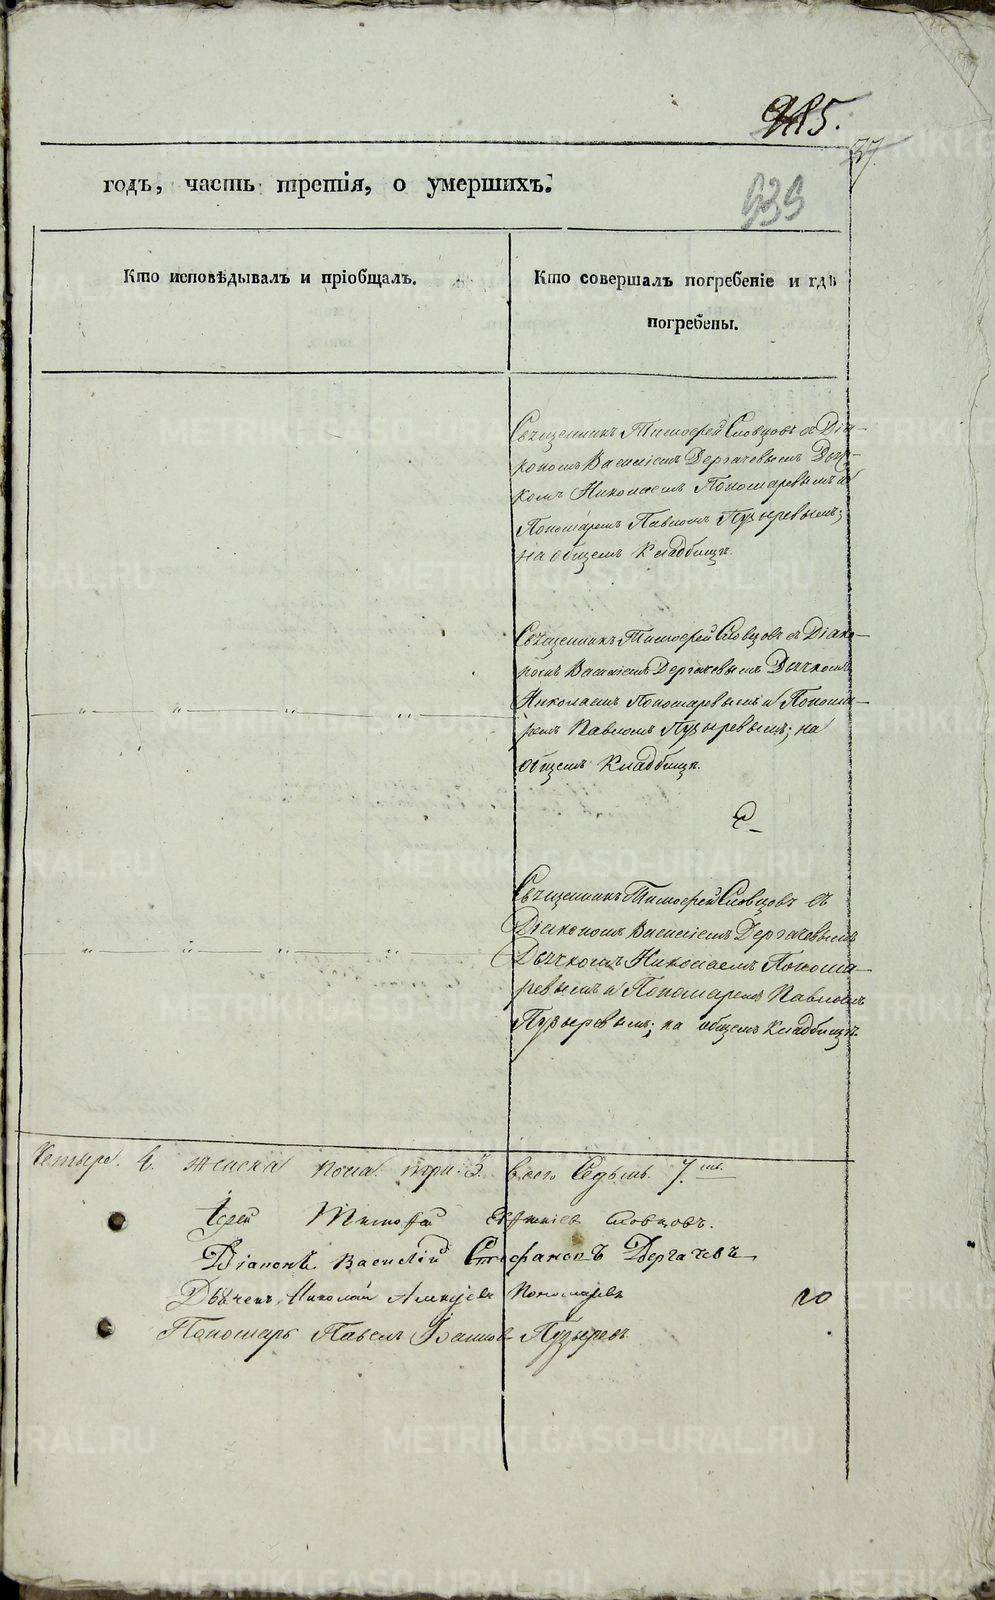 485.
37.
годъ, часть третія, о умершихъ.
939
Кто исповѣдывалъ и пріобщалъ.
Кто совершалъ погребеніе и гдѣ
погребены.
Священникъ Тимофей Словцовъ съ Діа-
кономъ Василіемъ Дергачевымъ Дьяч-
комъ Николаемъ Пономаревымъ и
Пономаремъ Павломъ Пузыревымъ;
на общемъ Кладбищѣ.
Священникъ Тимофей Словцовъ съ Діако-
номъ Василіемъ Дергачевымъ Дьячкомъ
Николаемъ Пономаревымъ и Понома-
ремъ Павломъ Пузыревымъ; на
общемъ Кладбищѣ.
Священникъ Тимофей Словцовъ съ
Діакономъ Василіемъ Дергачевымъ
Дьячкомъ Николаемъ Понома-
ревымъ и Пономаремъ Павломъ
Пузыревымъ; на общемъ Кладбищѣ.
Четыре. 4. женска пола три. 3. всего Седьмъ. 7.
Іерей Тимофей Словцовъ.
Діаконъ Василій Стефановъ Дергачевъ
Дьячекъ Николай Алексѣевъ Пономаревъ
Пономарь Павелъ Ивановъ Пузыревъ
METRIKI.GASO-URAL.RU